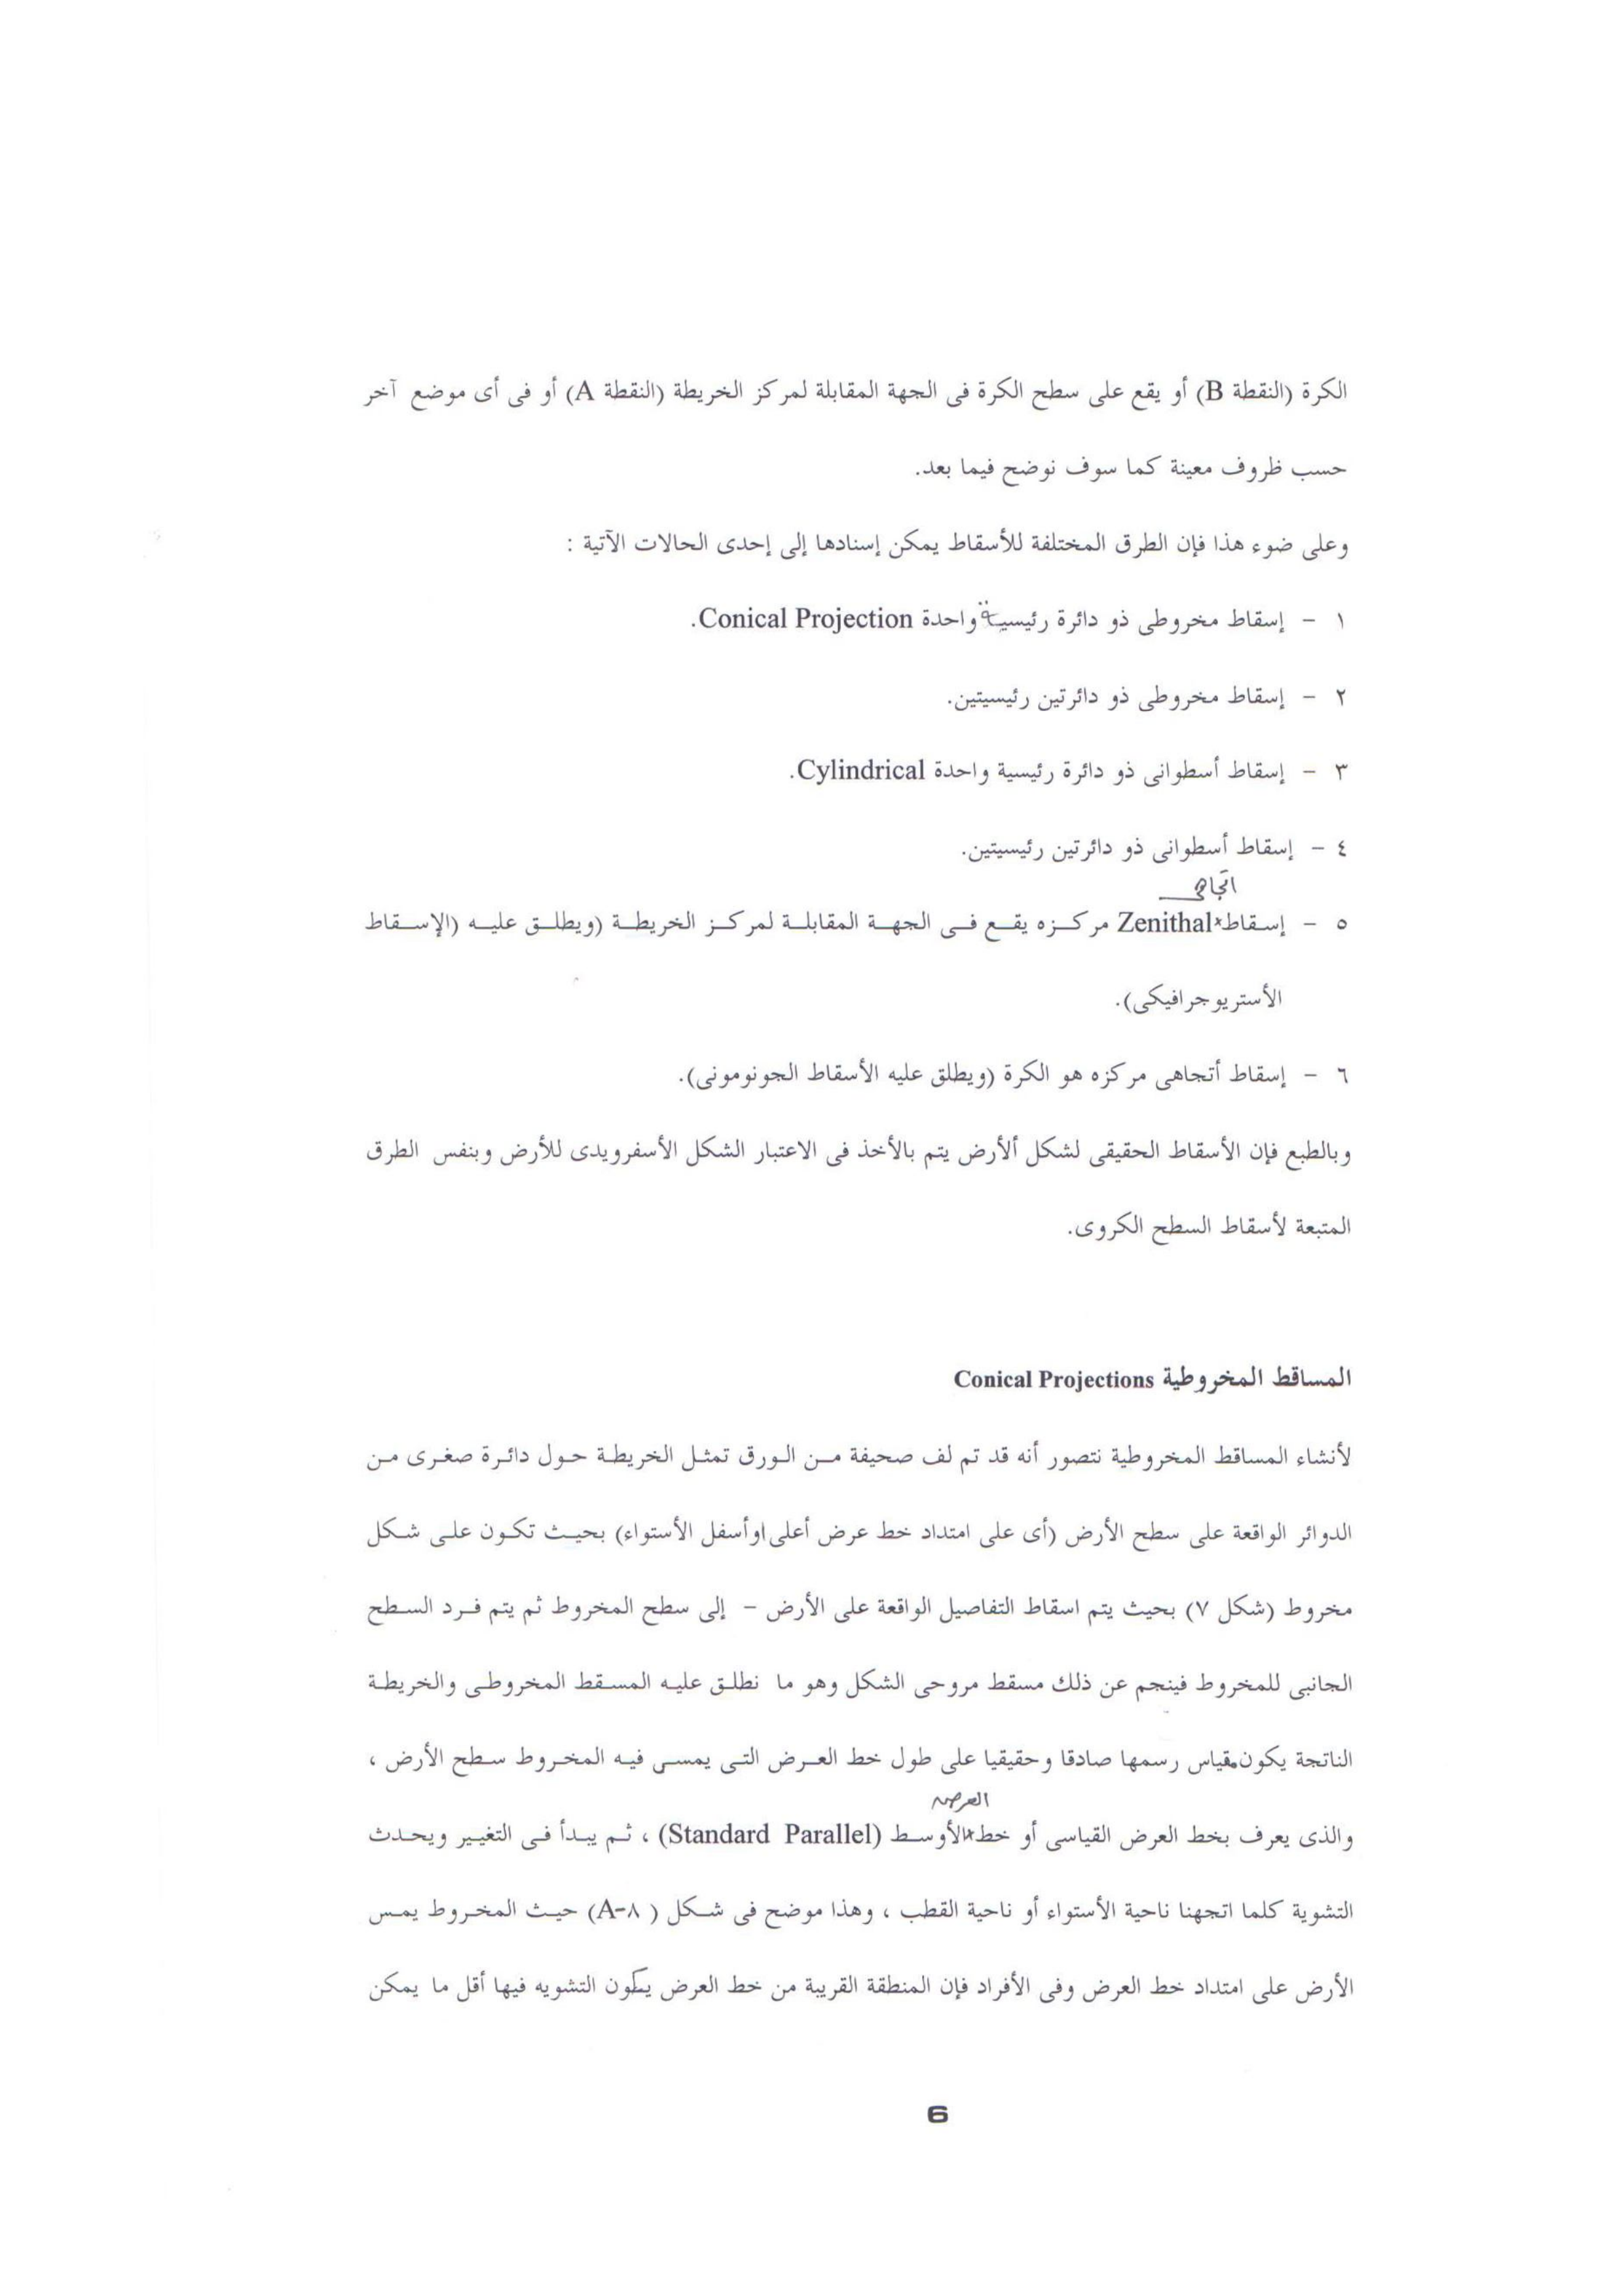 الكرة (النقطة B) أو يقع على سطح الكرة فى الجهة المقابلة لمركز الخريطة (النقطة A) أو فى أى موضع آخر
حسب ظروف معينة كما سوف نوضح فيما بعد.
وعلى ضوء هذا فإن الطرق المختلفة للأسقاط يمكن إسنادها إلى إحدى الحالات الآتية :
١ - إسقاط مخروطى ذو دائرة رئيسية واحدة Conical Projection.
٢ - إسقاط مخروطى ذو دائرتين رئيسيتين.
٣ - إسقاط أسطوانى ذو دائرة رئيسية واحدة Cylindrical.
٤ - إسقاط أسطوانى ذو دائرتين رئيسيتين.
اتجاهى
٥ - إسقاط Zenithal مركزه يقع فى الجهة المقابلة لمركز الخريطة (ويطلق عليه (الإسقاط
الأستريوجرافيكى).
٦ - إسقاط أتجاهى مركزه هو الكرة (ويطلق عليه الأسقاط الجونومونى).
وبالطبع فإن الأسقاط الحقيقى لشكل ألأرض يتم بالأخذ فى الاعتبار الشكل الأسفرويدى للأرض وبنفس الطرق
المتبعة لأسقاط السطح الكروى.
المساقط المخروطية Conical Projections
لأنشاء المساقط المخروطية نتصور أنه قد تم لف صحيفة من الورق تمثل الخريطة حول دائرة صغرى من
الدوائر الواقعة على سطح الأرض (أى على امتداد خط عرض أعلى اوأسفل الأستواء) بحيث تكون على شكل
مخروط (شكل ٧) بحيث يتم اسقاط التفاصيل الواقعة على الأرض - إلى سطح المخروط ثم يتم فرد السطح
الجانبى للمخروط فينجم عن ذلك مسقط مروحى الشكل وهو ما نطلق عليه المسقط المخروطى والخريطة
الناتجة يكون مقياس رسمها صادقا وحقيقيا على طول خط العرض التى يمسى فيه المخروط سطح الأرض ،
العرض
والذى يعرف بخط العرض القياسى أو خط الأوسط (Standard Parallel) ، ثم يبدأ فى التغيير ويحدث
التشوية كلما اتجهنا ناحية الأستواء أو ناحية القطب ، وهذا موضح فى شكل ( ٨-A) حيث المخروط يمس
الأرض على امتداد خط العرض وفى الأفراد فإن المنطقة القريبة من خط العرض يكون التشويه فيها أقل ما يمكن
6